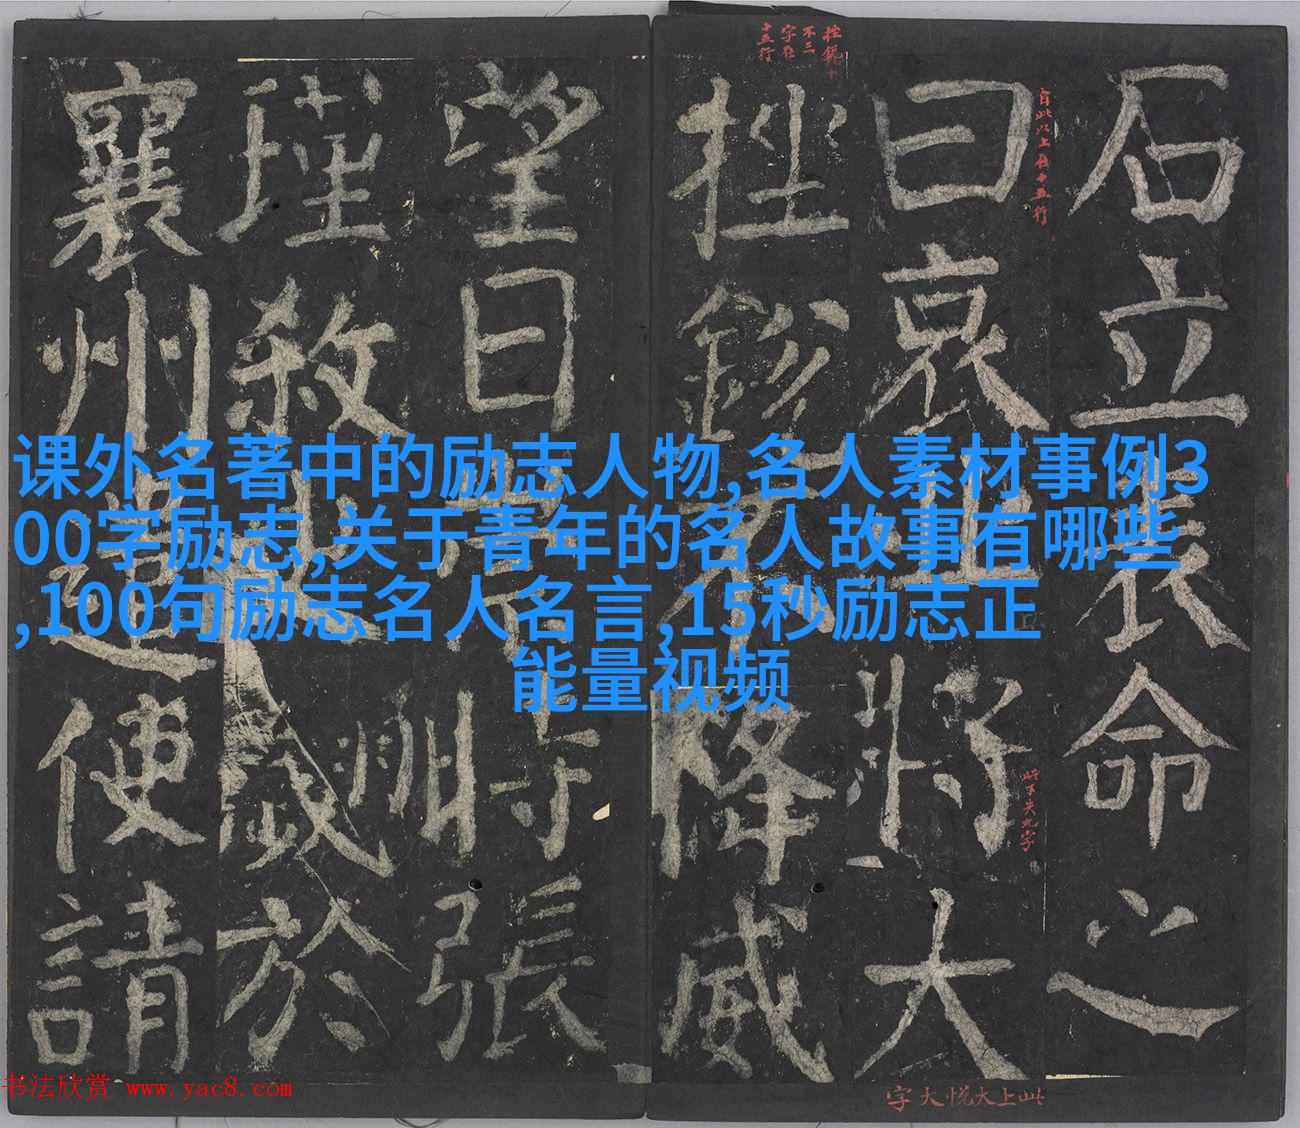 课外名著中的励志人物,名人素材事例3
00字励志,关于青年的名人故事有哪些
,100句励志名人名言,15秒励志正
能量视频
石立命之
曰哀將大
挫銳降威
望日時張
瑾於
襄州使請
自此以上在十五行
此下失九字
书法欣赏 www.yac8.com